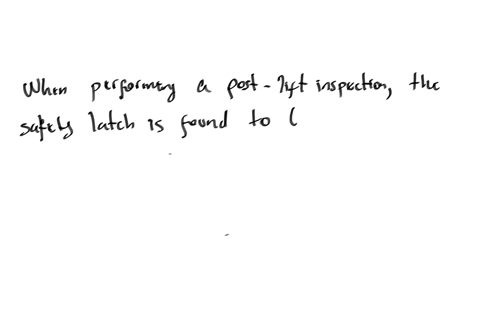 When performing a post-lift inspection, the
safety latch is found to (